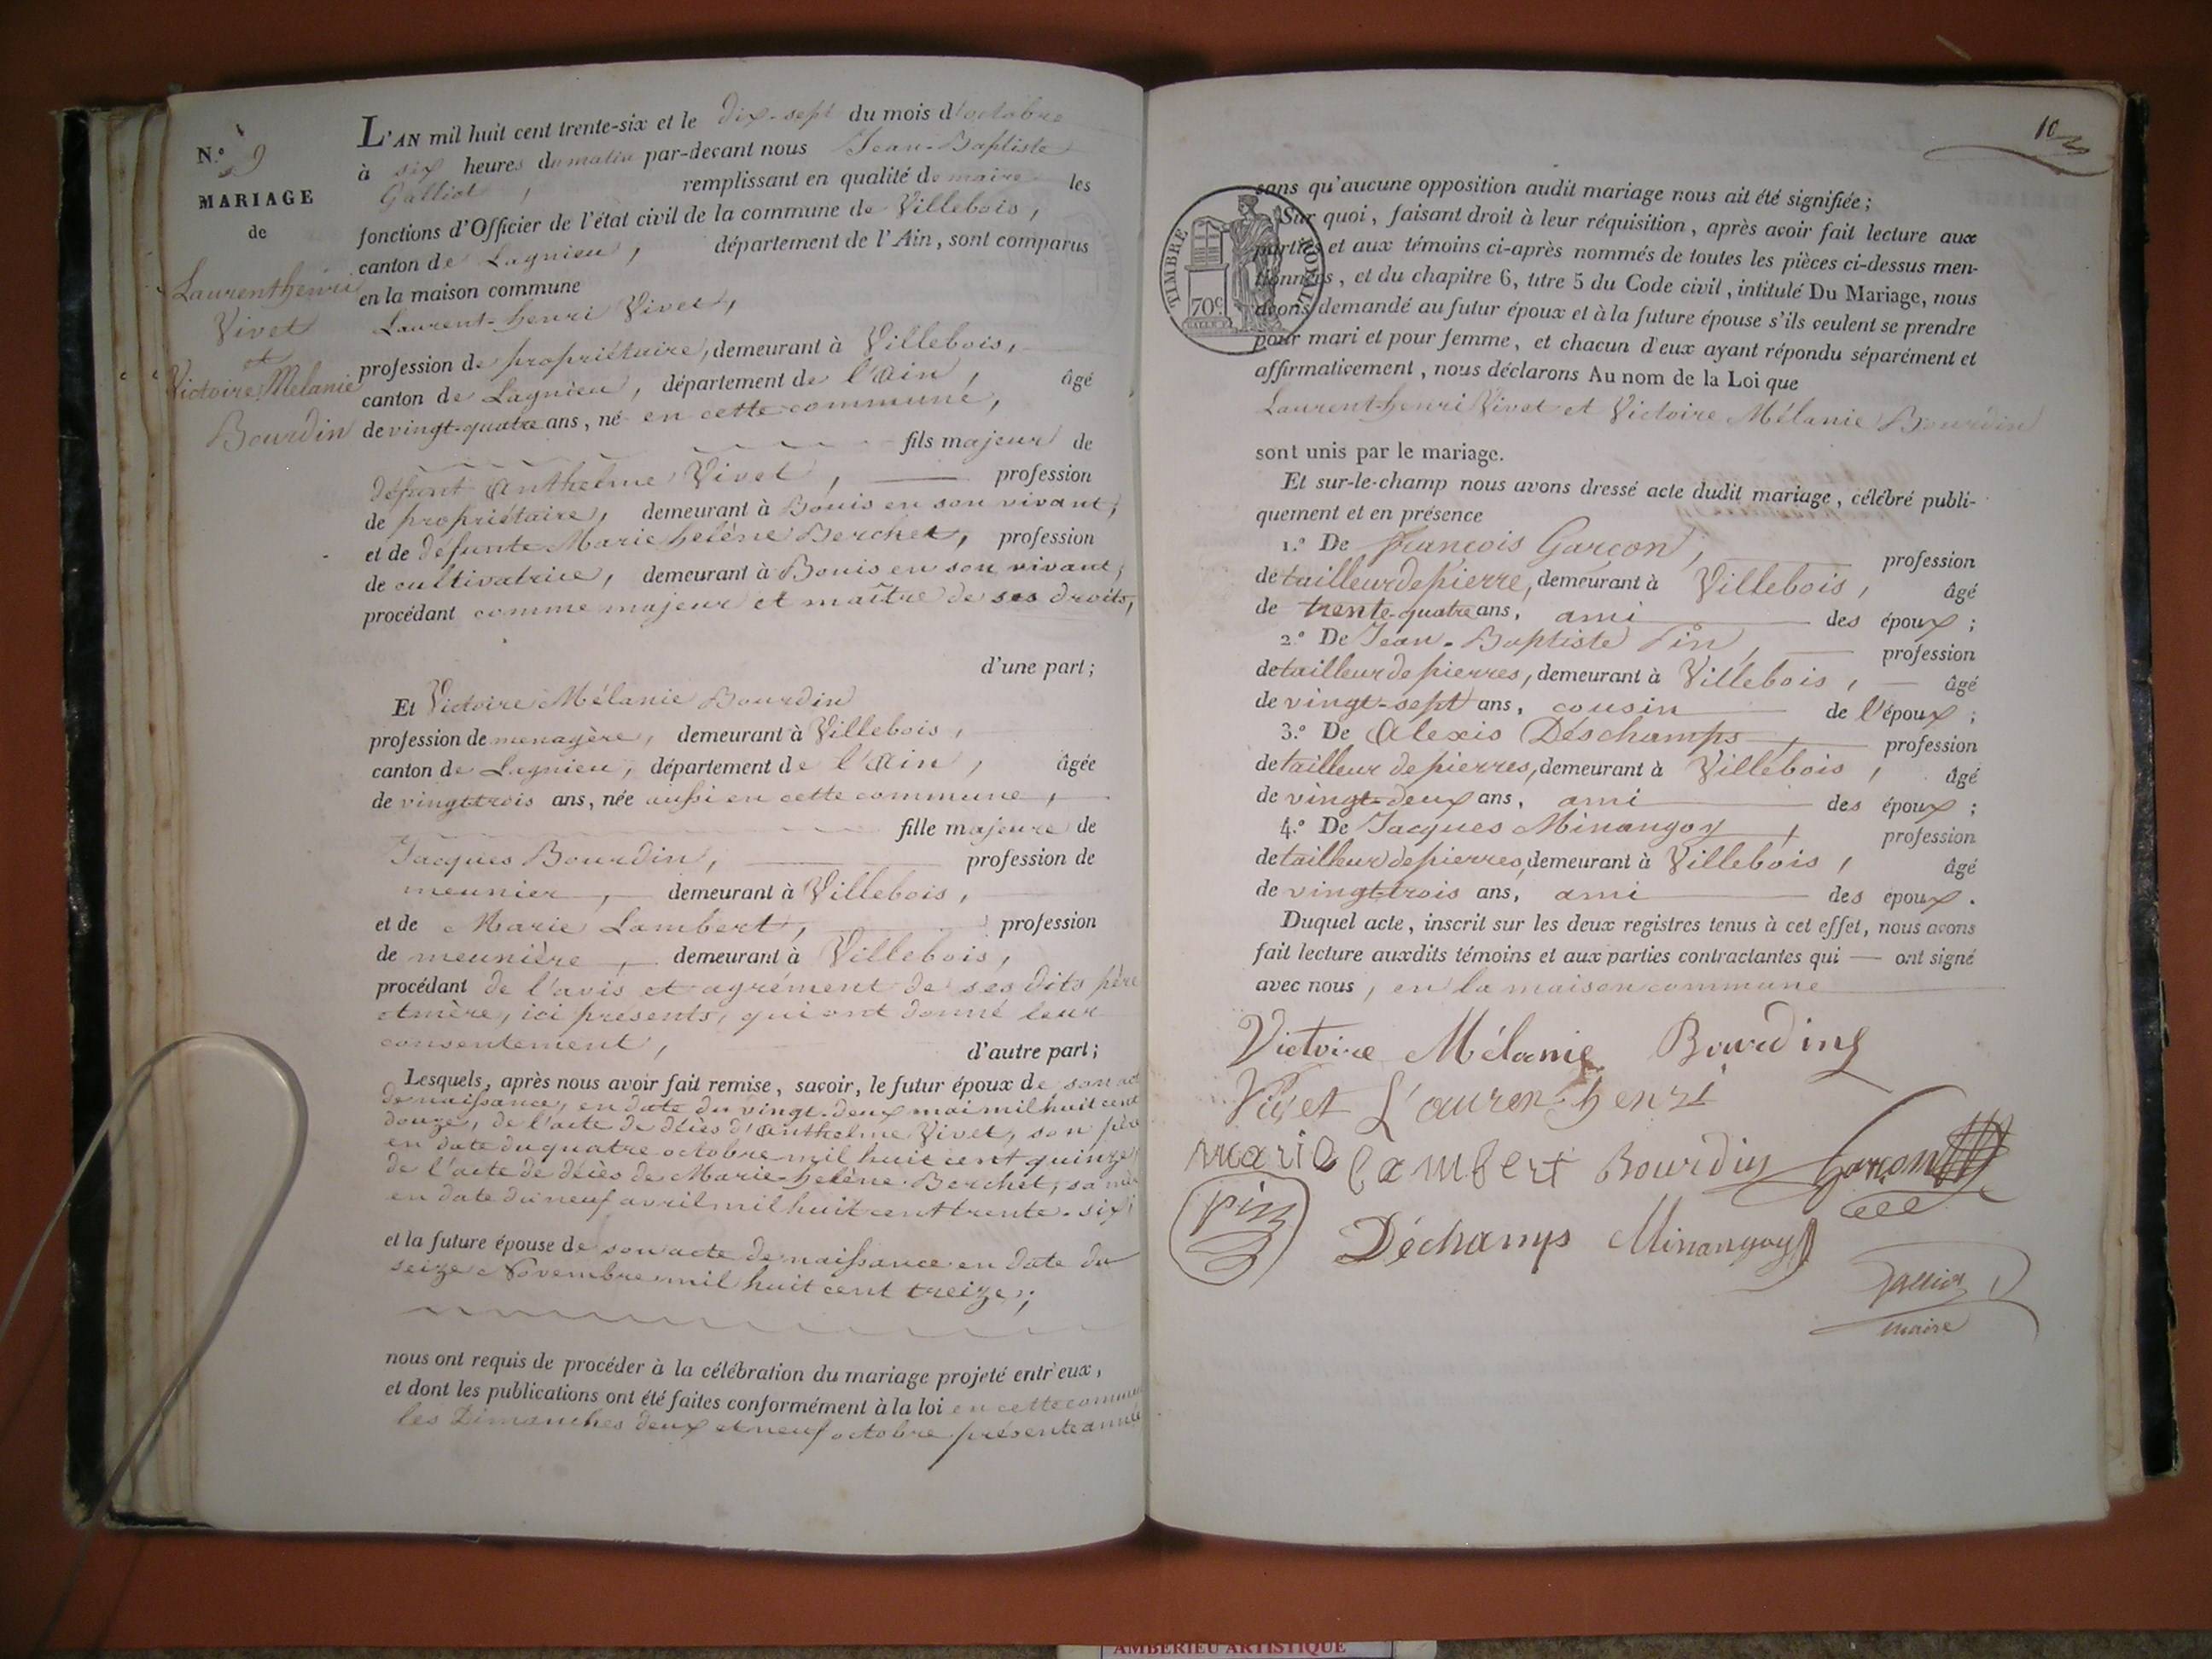 N.° 9
MARIAGE
de
Laurent henri
Vivet
et
Victoire Mélanie
Bourdin
L'AN mil huit cent trente-six et le dix-sept du mois d'octobre
à six heures du matin par-devant nous Jean-Baptiste
Galliot, remplissant en qualité de maire les
fonctions d'Officier de l'état civil de la commune de Villebois,
canton de Lagnieu, département de l'Ain, sont comparus
en la maison commune
Laurent-henri Vivet,
profession de propriétaire, demeurant à Villebois,
canton de Lagnieu, département de l'Ain, âgé
de vingt-quatre ans, né en cette commune,
fils majeur de
défunt Anthelme Vivet, profession
de propriétaire, demeurant à Bouis en son vivant,
et de défunte Marie helène Berchet, profession
de cultivatrice, demeurant à Bouis en son vivant;
procédant comme majeur et maître de ses droits,
d'une part;
Et Victoire Mélanie Bourdin
profession de menagère, demeurant à Villebois,
canton de Lagnieu, département de l'Ain, âgée
de vingt trois ans, née aussi en cette commune,
fille majeure de
Jacques Bourdin, profession de
meunier, demeurant à Villebois,
et de Marie Lambert, profession
de meunière, demeurant à Villebois,
procédant de l'avis et agrément de ses dits père
et mère, ici présents, qui ont donné leur
consentement, d'autre part;
Lesquels, après nous avoir fait remise, savoir, le futur époux de son act
de naissance, en date du vingt-deux mai mil huit cent
douze, de l'acte de décès d'Anthelme Vivet, son père
en date du quatre octobre mil huit cent quinze,
de l'acte de décès de Marie-helène Berchet, sa mèr
en date du neuf avril mil huit cent trente-six;
et la future épouse de son acte de naissance en date du
seize Novembre mil huit cent treize;
nous ont requis de procéder à la célébration du mariage projeté entr'eux,
et dont les publications ont été faites conformément à la loi en cette commune
les Dimanches deux et neuf octobre présente année
10
TIMBRE ROYAL
70c
sans qu'aucune opposition audit mariage nous ait été signifiée;
Sur quoi, faisant droit à leur réquisition, après avoir fait lecture aux
parties et aux témoins ci-après nommés de toutes les pièces ci-dessus men-
tionnées, et du chapitre 6, titre 5 du Code civil, intitulé Du Mariage, nous
avons demandé au futur époux et à la future épouse s'ils veulent se prendre
pour mari et pour femme, et chacun d'eux ayant répondu séparément et
affirmativement, nous déclarons Au nom de la Loi que
Laurent-henri Vivet et Victoire Mélanie Bourdin
sont unis par le mariage.
Et sur-le-champ nous avons dressé acte dudit mariage, célébré publi-
quement et en présence
1.° De françois Garçon, profession
de tailleur de pierre, demeurant à Villebois, âgé
de trente-quatre ans, ami des époux;
2.° De Jean-Baptiste Pin, profession
de tailleur de pierres, demeurant à Villebois, âgé
de vingt-sept ans, cousin de l'époux;
3.° De Alexis Déschamps, profession
de tailleur de pierres, demeurant à Villebois, âgé
de vingt-deux ans, ami des époux;
4.° De Jacques Minangoy, profession
de tailleur de pierres, demeurant à Villebois, âgé
de vingt trois ans, ami des époux.
Duquel acte, inscrit sur les deux registres tenus à cet effet, nous avons
fait lecture auxdits témoins et aux parties contractantes qui — ont signé
avec nous, en la maison commune
Victoire Mélanie Bourding
Vivet L'auren-henri
maria lambert Bourdin Garçon
pin Déchamps Minangoy
Galliot
maire
AMBERIEU ARTISTIQUE